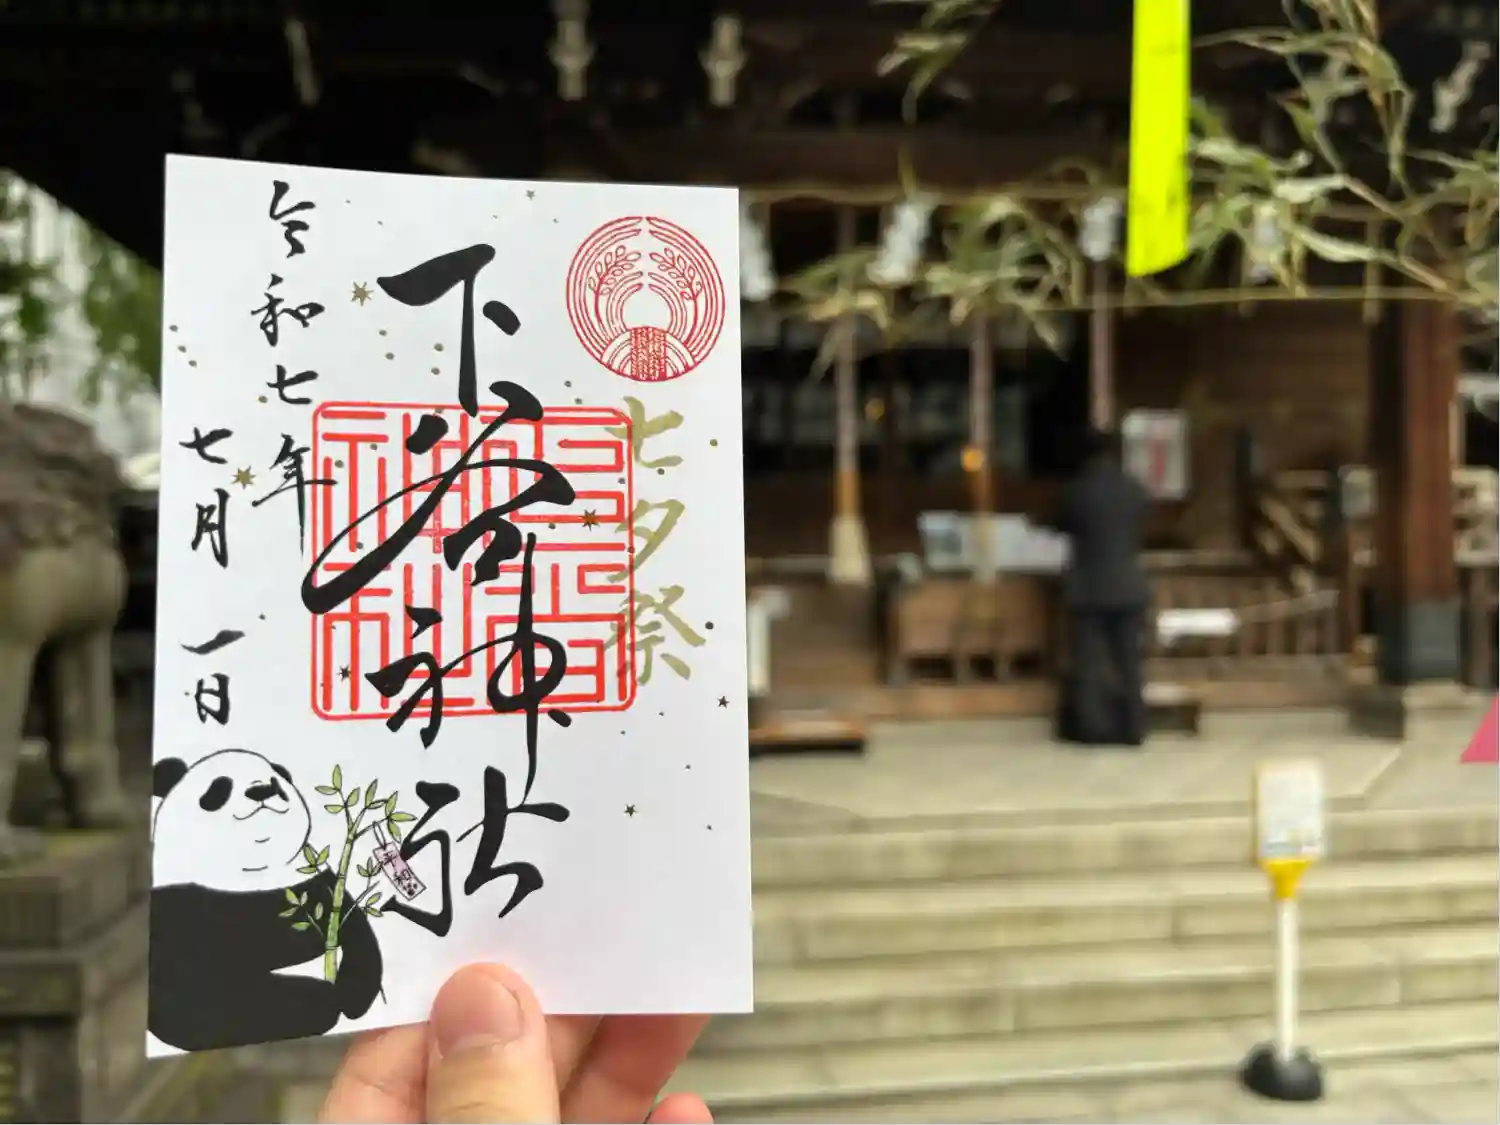 七夕祭
下谷神社
下谷神社
令和七年
七月一日
平和